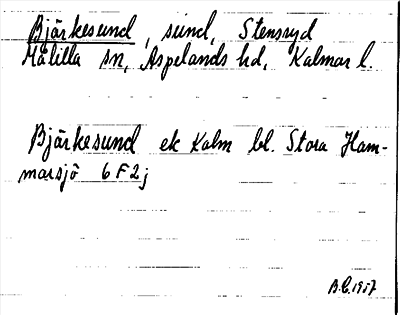 Bjärkesund, sund, Stensryd
Målilla sn, Aspelands hd, Kalmar l.
Bjärkesund ek Kalm bl. Stora Ham-
marsjö 6F2j
B.E.1957